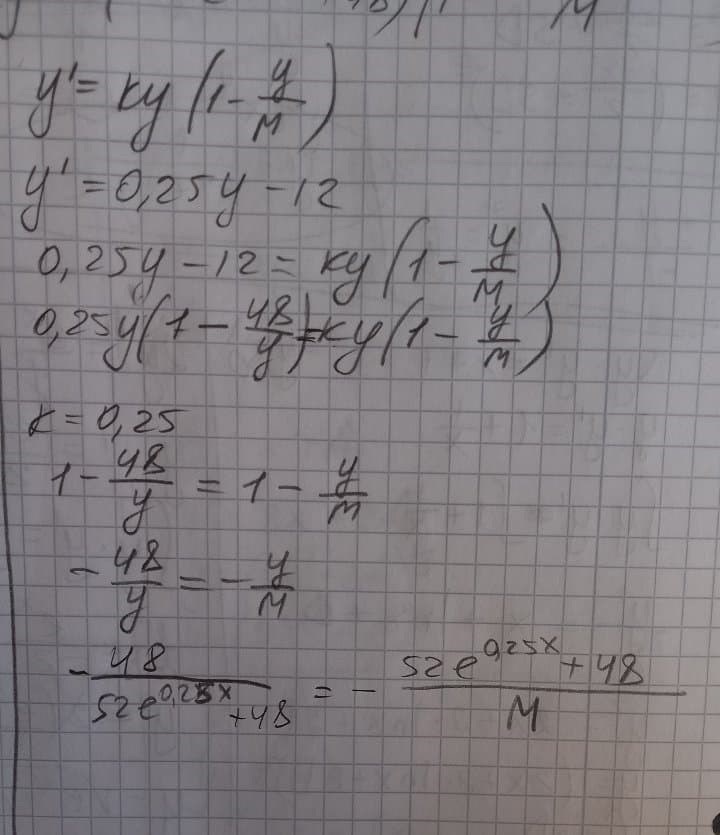 y' = ky(1 - y/M)
y' = 0,25y - 12
0,25y - 12 = ky(1 - y/M)
0,25y(1 - 48/y) = ky(1 - y/M)
k = 0,25
1 - 48/y = 1 - y/M
- 48/y = - y/M
- 48/(52e^(0,25x) + 48) = - (52e^(0,25x) + 48)/M